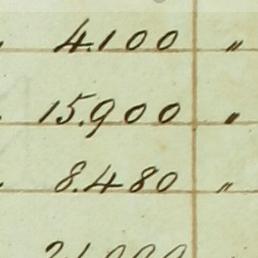 4.100 "
15.900 "
8.480 "